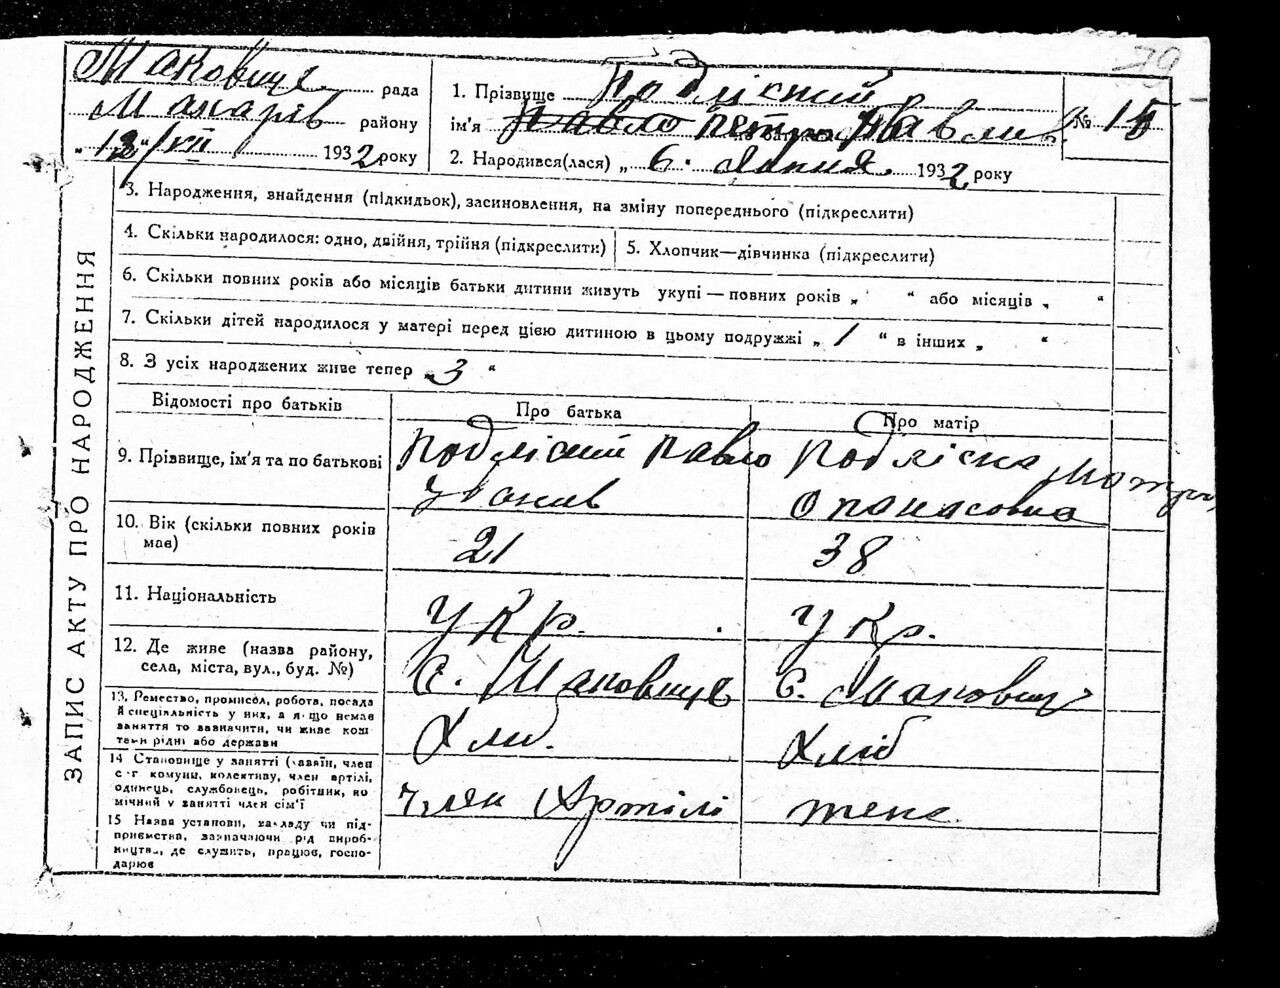 79
Маковище рада
Макарів району
"13"/VII 1932 року
1. Прізвище Подліский
ім'я Павло Петро по батькові Павлив
№ 15
2. Народився(лася) „ 6. Липня. 1932 року
ЗАПИС АКТУ ПРО НАРОДЖЕННЯ
3. Народження, знайдення (підкидьок), засиновлення, на зміну попереднього (підкреслити)
4. Скільки народилося: одно, двійня, трійня (підкреслити)
5. Хлопчик—дівчинка (підкреслити)
6. Скільки повних років або місяців батьки дитини живуть укупі — повних років „ “ або місяців „ “
7. Скільки дітей народилося у матері перед цією дитиною в цьому подружжі „ 1 “ в інших „ “
8. З усіх народжених живе тепер „3 “
Відомості про батьків
Про батька
Про матір
9. Прізвище, ім'я та по батькові
Подліский Павло
Іванив
Подліска Мотря
Опанасовна
10. Вік (скільки повних років
має)
21
38
11. Національність
Укр.
Укр.
12. Де живе (назва району,
села, міста, вул., буд. №)
С. Маковище
С. Маковищ
13. Ремество, промисел, робота, посада
й спеціяльність у них, а якщо немає
заняття то зазначити, чи живе кош
тами рідні або держави
Хлиб.
Хліб
14 Становище у занятті (хазяїн, член
с-г комуни, колективу, член артілі,
одинець, службовець, робітник, по
мічний у занятті член сім'ї
член Артілі
теж.
15 Назва установи, закладу чи під-
приємства, зазначаючи рід вироб-
ництва, де служить, працює, госпо-
дарює